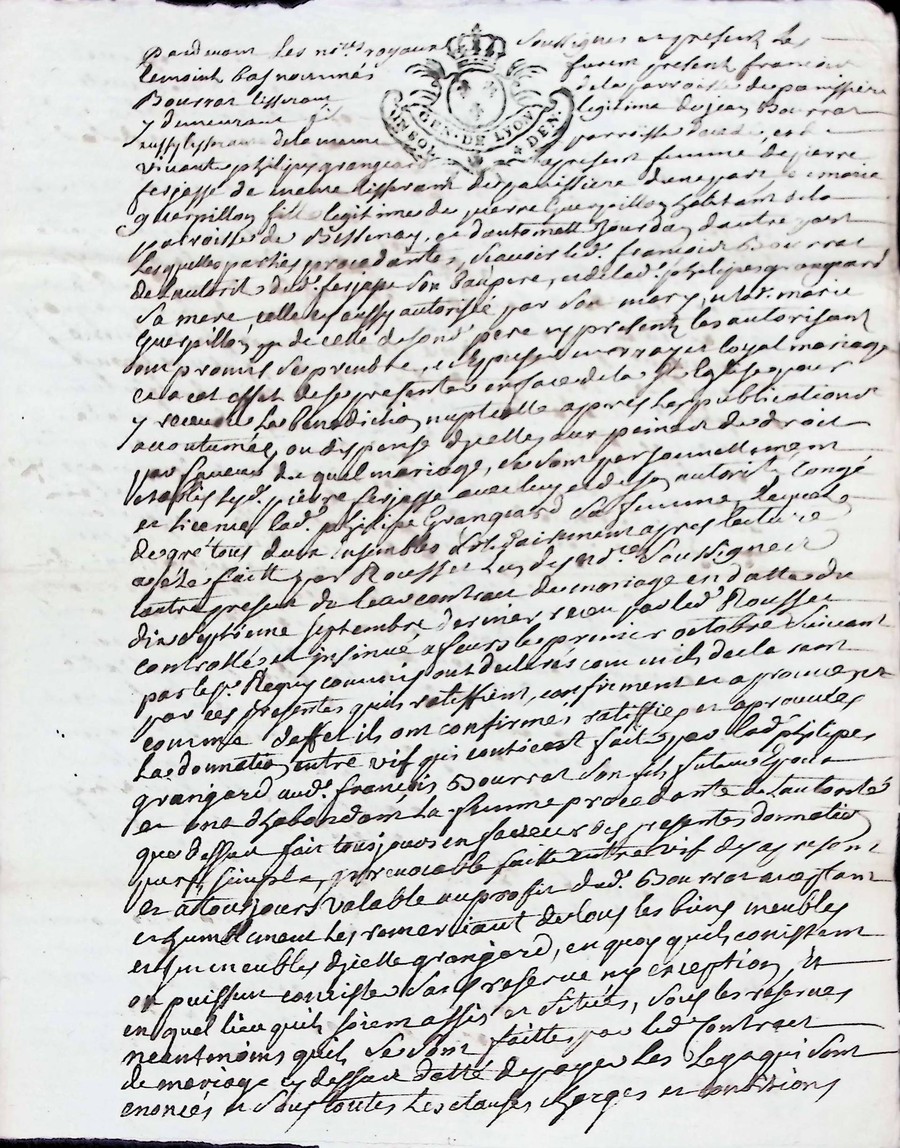 Pardevant les nres royaux soussignes et present les
temoins bas nommés furent present francois
Bourrat tisserant de la parroisse de panissiere
y demeurant fils legitime de jean Bourrat
aussy tisserant de la meme parroisse decedé, et de
vivante philipe grangeard a present femme de pierre
ferjasse de meme tisserant de panissiere d'une part, et marie
guerpillon fille legitime de pierre Guerpillon habitant de la
parroisse de Bissenay, et d'antoinette jourdan d'autre part
Lesquelles parties procedantes, scavoir led. francois Bourrat
de l'autorité dud. ferjasse son beaupere, et de lad. philipes grangeard
sa mere, celle cy aussy autorisée par son mary, et lad. marie
Guerpillon de celle de sond. pere icy present, les autorisant
ont promis se prendre, et epouser en vray et loyal mariage
et a cet effet de se presenter en face de la Ste Eglise pour
y recevoir la benediction nuptialle apres les publications
accoutumées, ou dispense d'icelles, aux peines de droit
par faveur du quel mariage, se sont personnellement
etablis led. pierre ferjasse avec luy et de son autorité, congé
et licence lad. philipe Grangeard sa femme, lesquels
de gré tous deux ensembles solidairement apres lecture
a eté faitte par Rousset l'un des nres soussignes
l'autre present de leur contract de mariage en datte du
dix septieme septembre dernier receu par led. Rousset
controllé et insinué a feurs le premier octobre suivant
par le sr. Requy commis ont declarés comm'ils declarent
par ces presentes qu'ils ratiffient, confirment et aprouvent
comme d'effet ils ont confirmés ratiffiés et aprouvés
La donnation entre vif qui contient faitte par lad. philipes
grangeard aud. francois Bourrat son fils futur Epoux
et en a d'abondant la femme procedante de l'autorité
que dessus fait tousjours en faveur des presentes donnation
pure, simple, irrevocable faitte entre vif des a present
et a toujours valable au profit dud. Bourrat acceptant
et humblement les remerciant de tous les biens meubles
et immeubles d'icelle grangeard, en quoy qu'ils consistent
ou puissent consister sans reserve ny exception, et
en quel lieu qu'ils soient assis et situés, sous les reserves
neantmoins qu'ils se sont faittes par led. Contract
de mariage cy dessus datté de payer les Legs qui sont
enoncés et sous toutes les clauses charges et conditions
GEN. DE LYON